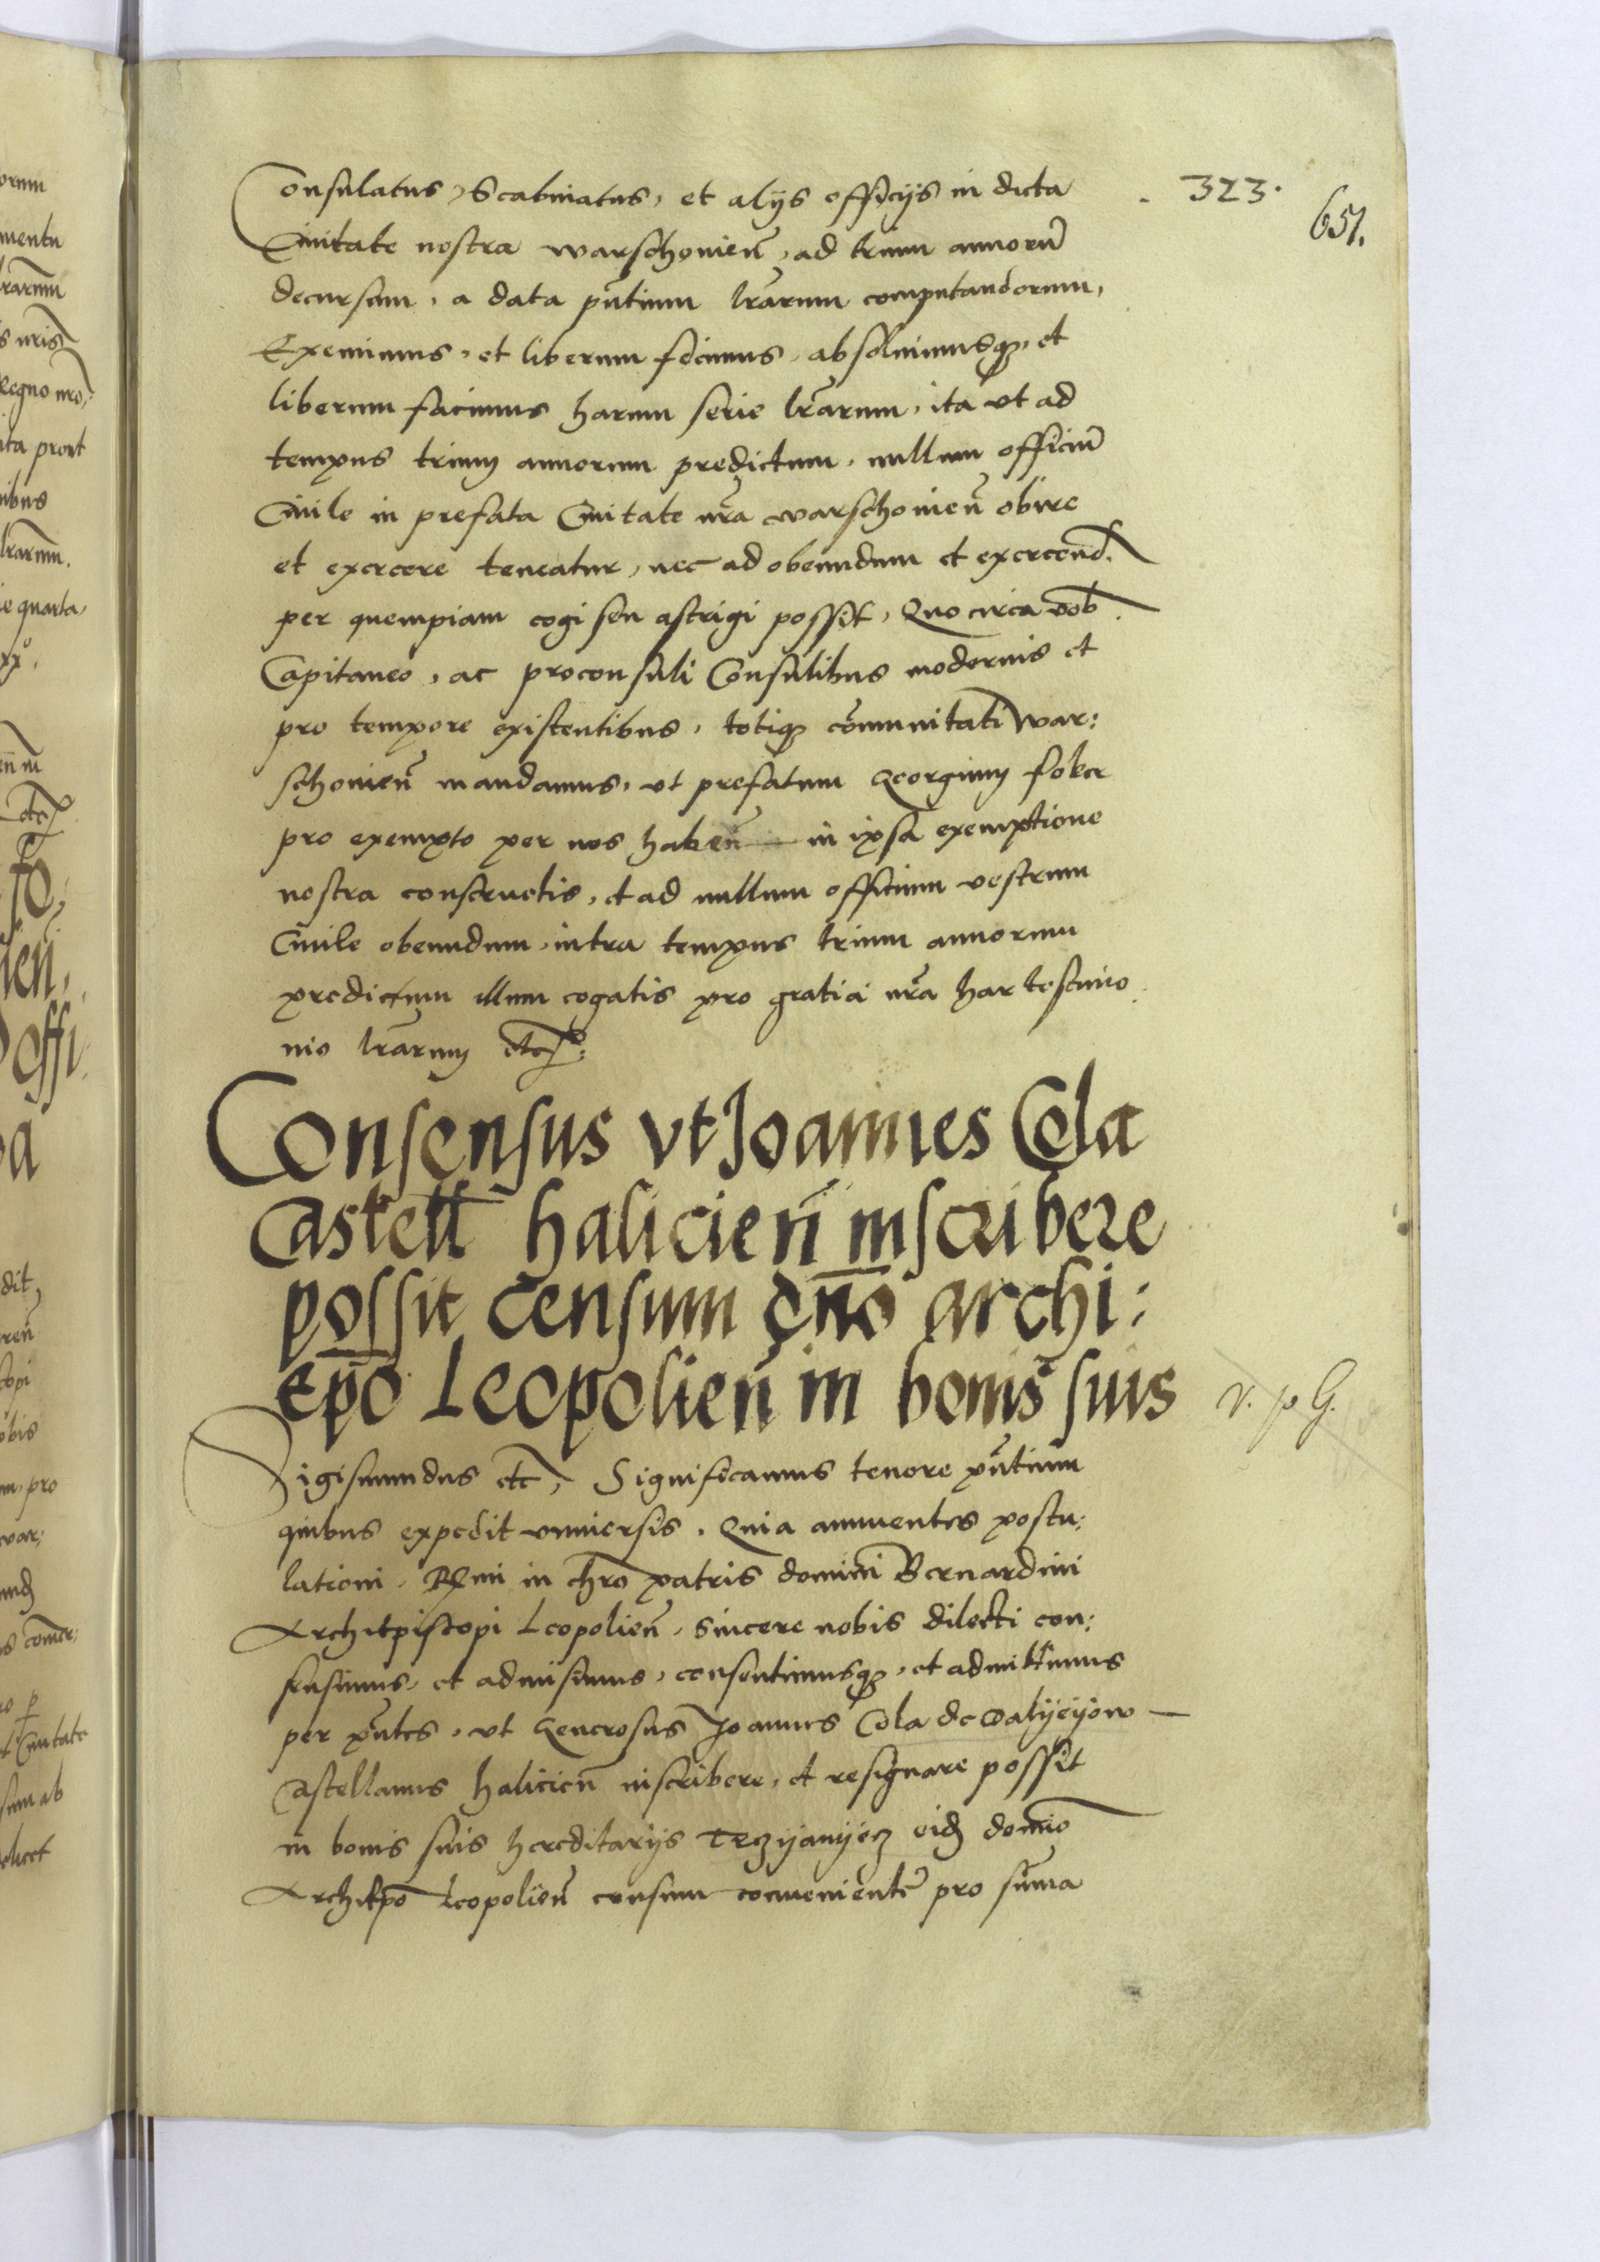 323.
651.
Consulatus, Scabinatus, et alijs officijs in dicta
Ciuitate nostra warschouien̄, ad trium annorū
decursum, a data pn̄tium lrārum computandorum,
Exemimus, et liberum fecimus, absoluimusqȝ, et
liberum facimus harum serie lrārum, ita vt ad
tempus trium annorum predictum, nullum officiū
Ciuile in prefata Ciuitate nrā warschouien̄ obire
et exercere teneatur, nec ad obeundum et exercend.
per quempiam cogi seu astrigi possit, Quocirca vob.
Capitaneo, ac proconsuli Consulibus modernis et
pro tempore existentibus, totiqȝ cōmunitati war:
schouien̄ mandamus, vt prefatum Georgium foker
pro exempto per nos haben̄ in ipsa exemptione
nostra conseruetis, et ad nullum officium vestrum
Ciuile obeundum, intra tempus trium annorum
predictum illum cogatis pro gratia nrā har testimo
nio lrārum etc:
Consensus vt Joannes Cola
Castell halicien̄ inscribere
possit censum dn̄o archi:
epō Leopolien̄ in bonis suis
v. p G.
Sigismundus etc, Significamus tenore pn̄tium
quibus expedit vniuersis. Quia annuentes postu:
lationi, Rm̄i in chrō patris domini Bernardini
Archiepiscopi Leopolien̄, sincere nobis dilecti con:
sensimus, et admisimus, consentimusqȝ, et admittimus
per pn̄tes, vt Generosus Joannes Cola de Dalyeyow
Castellanus halicien̄ inscribere, et resignare possit
in bonis suis hereditarijs Trzyanyecz eidȝ domino
Archiepō Leopolien̄ censum conuenientē pro sūma